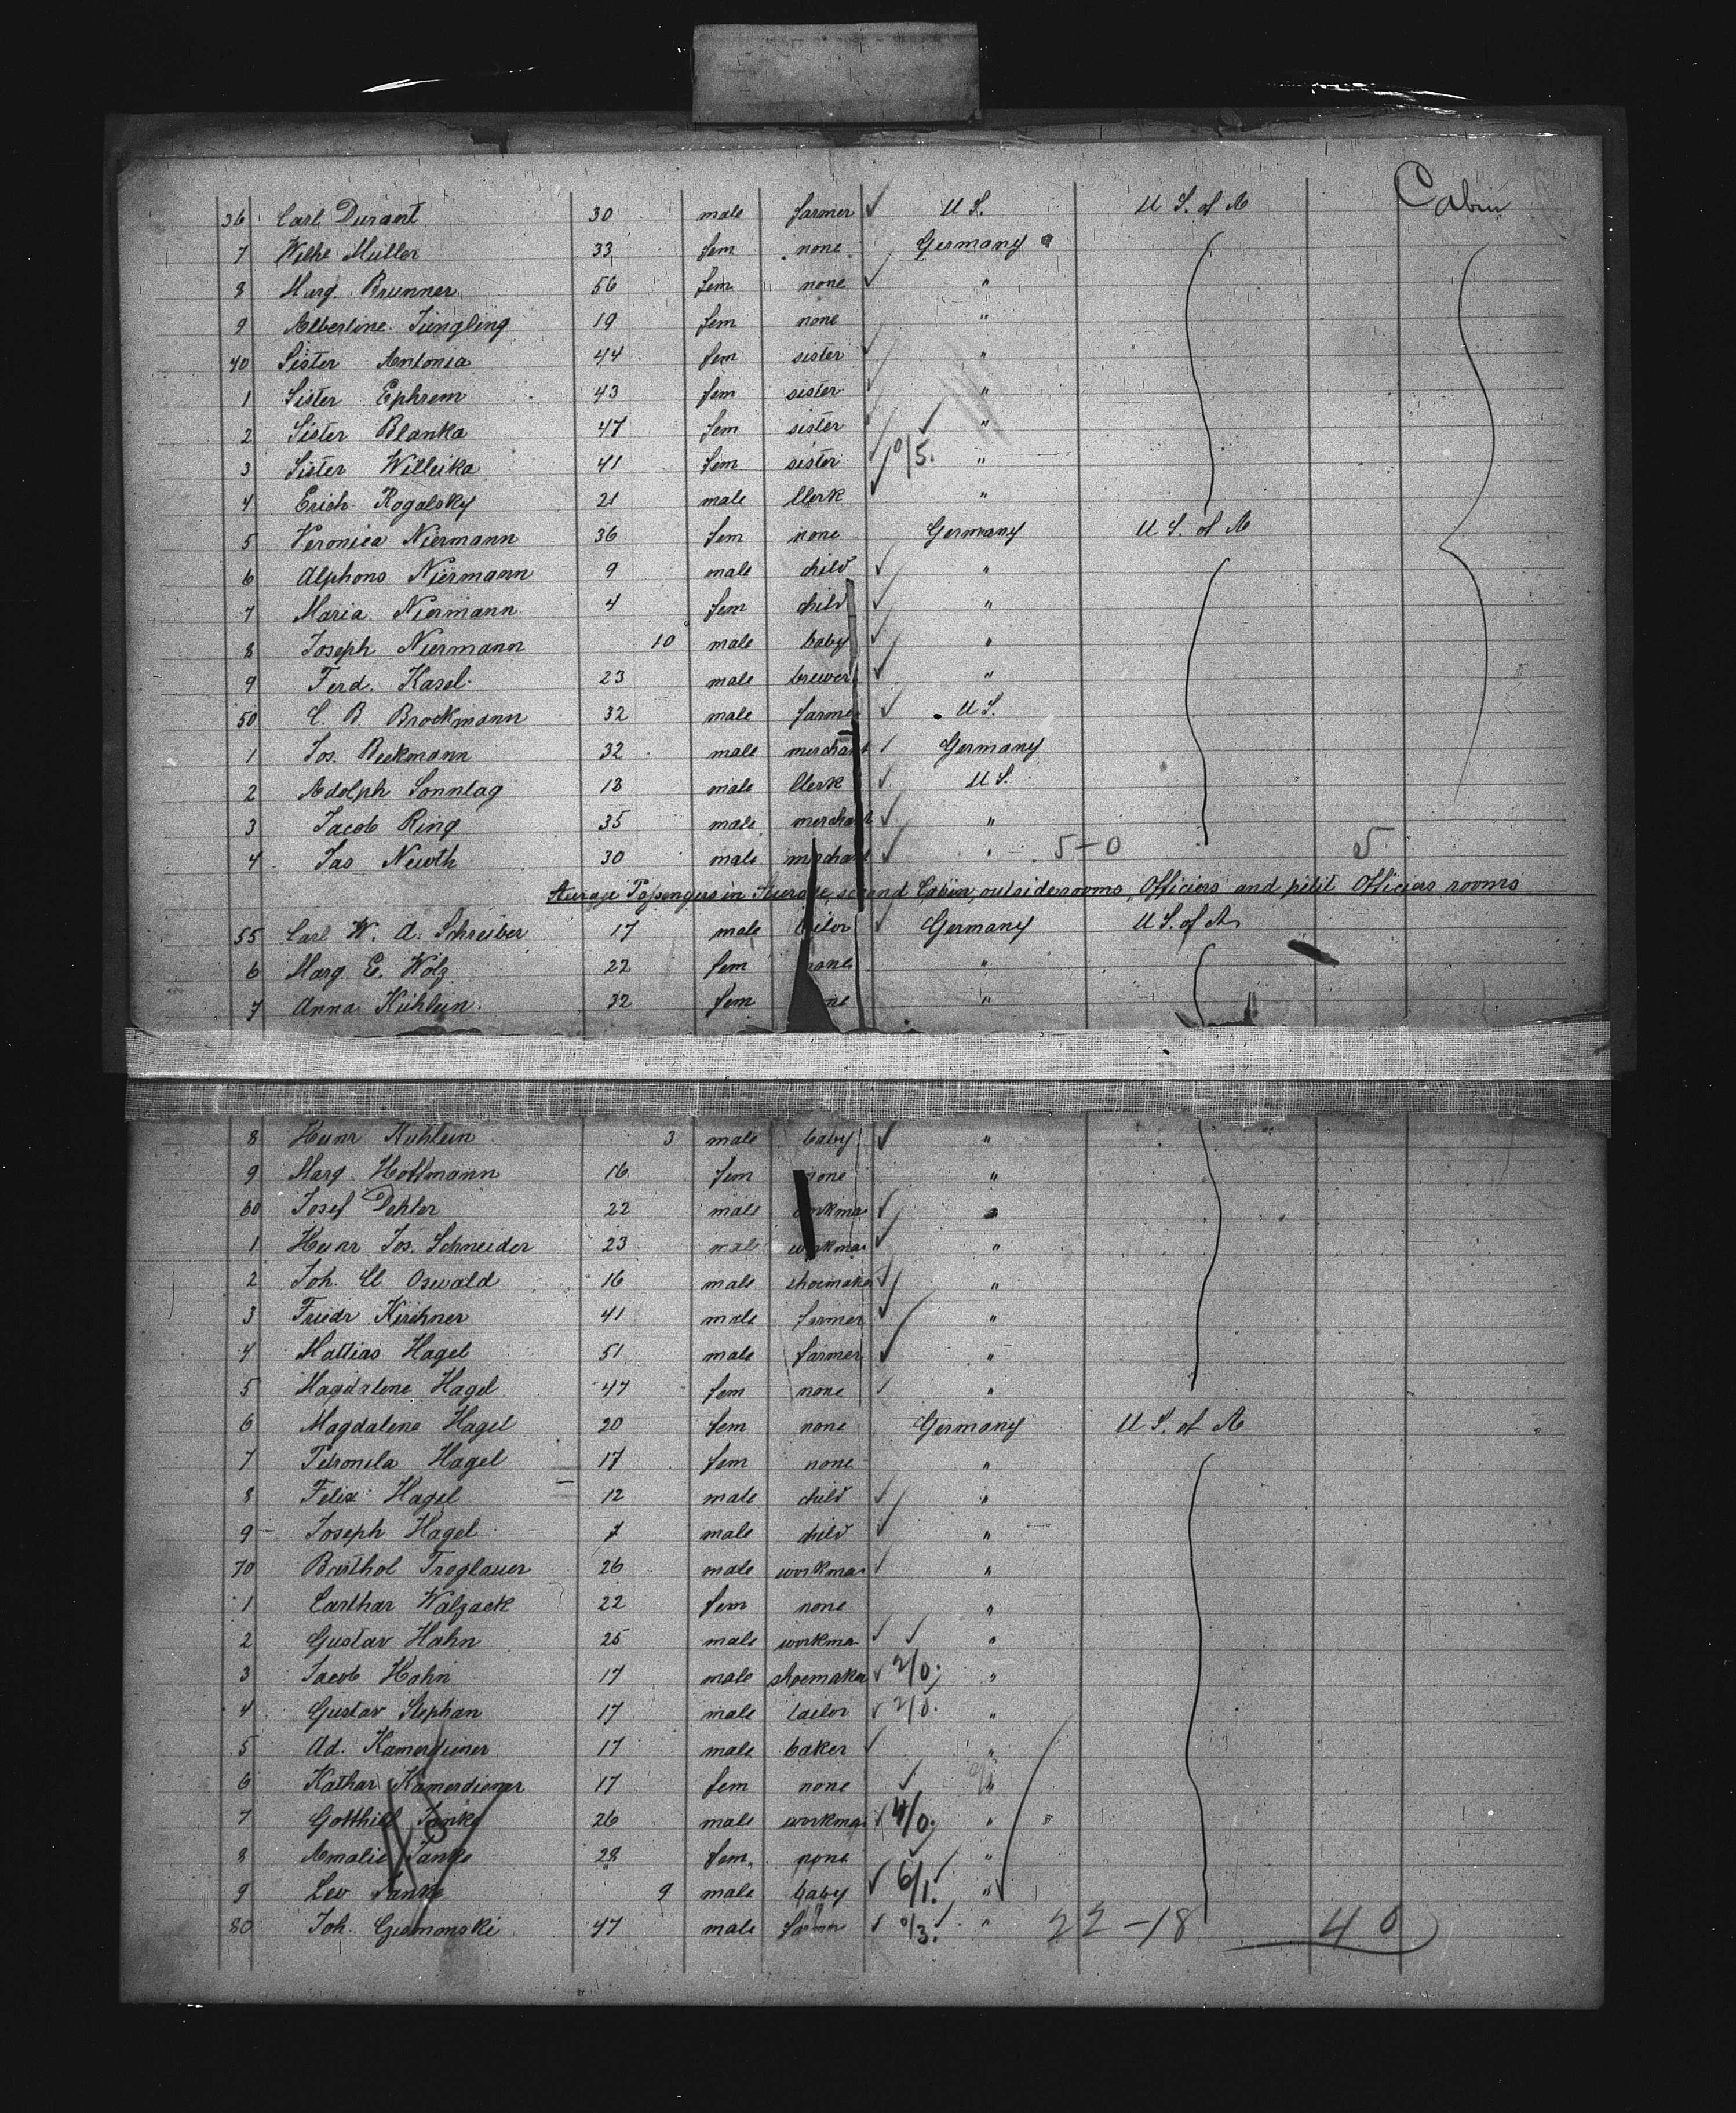 Cabin
36 Carl Durant 30 male farmer ✓ U S. U S. of A
7 Wilhe Müller 33 fem none Germany
8 Marg. Brunner 56 fem none ✓ "
9 Albertine Jüngling 19 fem none "
40 Sister Antonia 44 fem sister ✓ "
1 Sister Ephrem 43 fem sister ✓ "
2 Sister Blanka 47 fem sister ✓ ✓ "
3 Sister Willeika 41 fem sister ✓ 0/5. "
4 Erich Rogalsky 21 male Clerk ✓ "
5 Veronica Niermann 36 fem none Germany U S. of A
6 Alphons Niermann 9 male child ✓ "
7 Maria Niermann 4 fem child ✓ "
8 Joseph Niermann 10 male baby ✓ "
9 Ferd. Kasel 23 male brewer ✓ "
50 C. B. Brockmann 32 male farmer ✓ U S.
1 Jos. Beckmann 32 male merchant ✓ Germany
2 Adolph Sonntag 18 male Clerk ✓ U S.
3 Jacob Ring 35 male merchant ✓ "
4 Jas Newth 30 male merchant ✓ " 5-0 5
Passengers in Steerage, second Cabin, outside rooms, Officiers and petit Officiers rooms
55 Carl W. A. Schreiber 17 male ✓ Germany U S. of A
6 Marg. E. Wolz 22 fem none "
7 Anna Kühlein 32 fem "
8 Heinr Kühlein 3 male baby ✓ "
9 Marg. Hoffmann 16 fem none "
60 Josef Dehler 22 male workman ✓ "
1 Heinr Jos. Schneider 23 male workman ✓ "
2 Joh. Oswald 16 male shoemaker ✓ "
3 Friedr Kirchner 41 male farmer ✓ "
4 Mattias Hagel 51 male farmer ✓ "
5 Magdalene Hagel 47 fem none ✓ "
6 Magdalene Hagel 20 fem none Germany U S. of A
7 Petronela Hagel 17 fem none "
8 Felix Hagel 12 male child ✓ "
9 Joseph Hagel 7 male child ✓ "
70 Barthol Troglauer 26 male workman ✓ "
1 Carthar Walzack 22 fem none "
2 Gustav Hahn 25 male workman ✓ ✓ "
3 Jacob Hahn 17 male shoemaker ✓ 2/0. "
4 Gustav Stephan 17 male tailor ✓ 2/0. "
5 Ad. Kamerdiener 17 male baker ✓ "
6 Kathar Kamerdiener 17 fem none ✓ "
7 Gotthilf Janke 26 male workman ✓ 4/0. "
8 Amalie Janke 28 fem. none ✓ "
9 Leo Janke 9 male baby ✓ 6/1. ✓ "
80 Joh. 47 male farmer ✓ 0/3. ✓ " 22-18 40